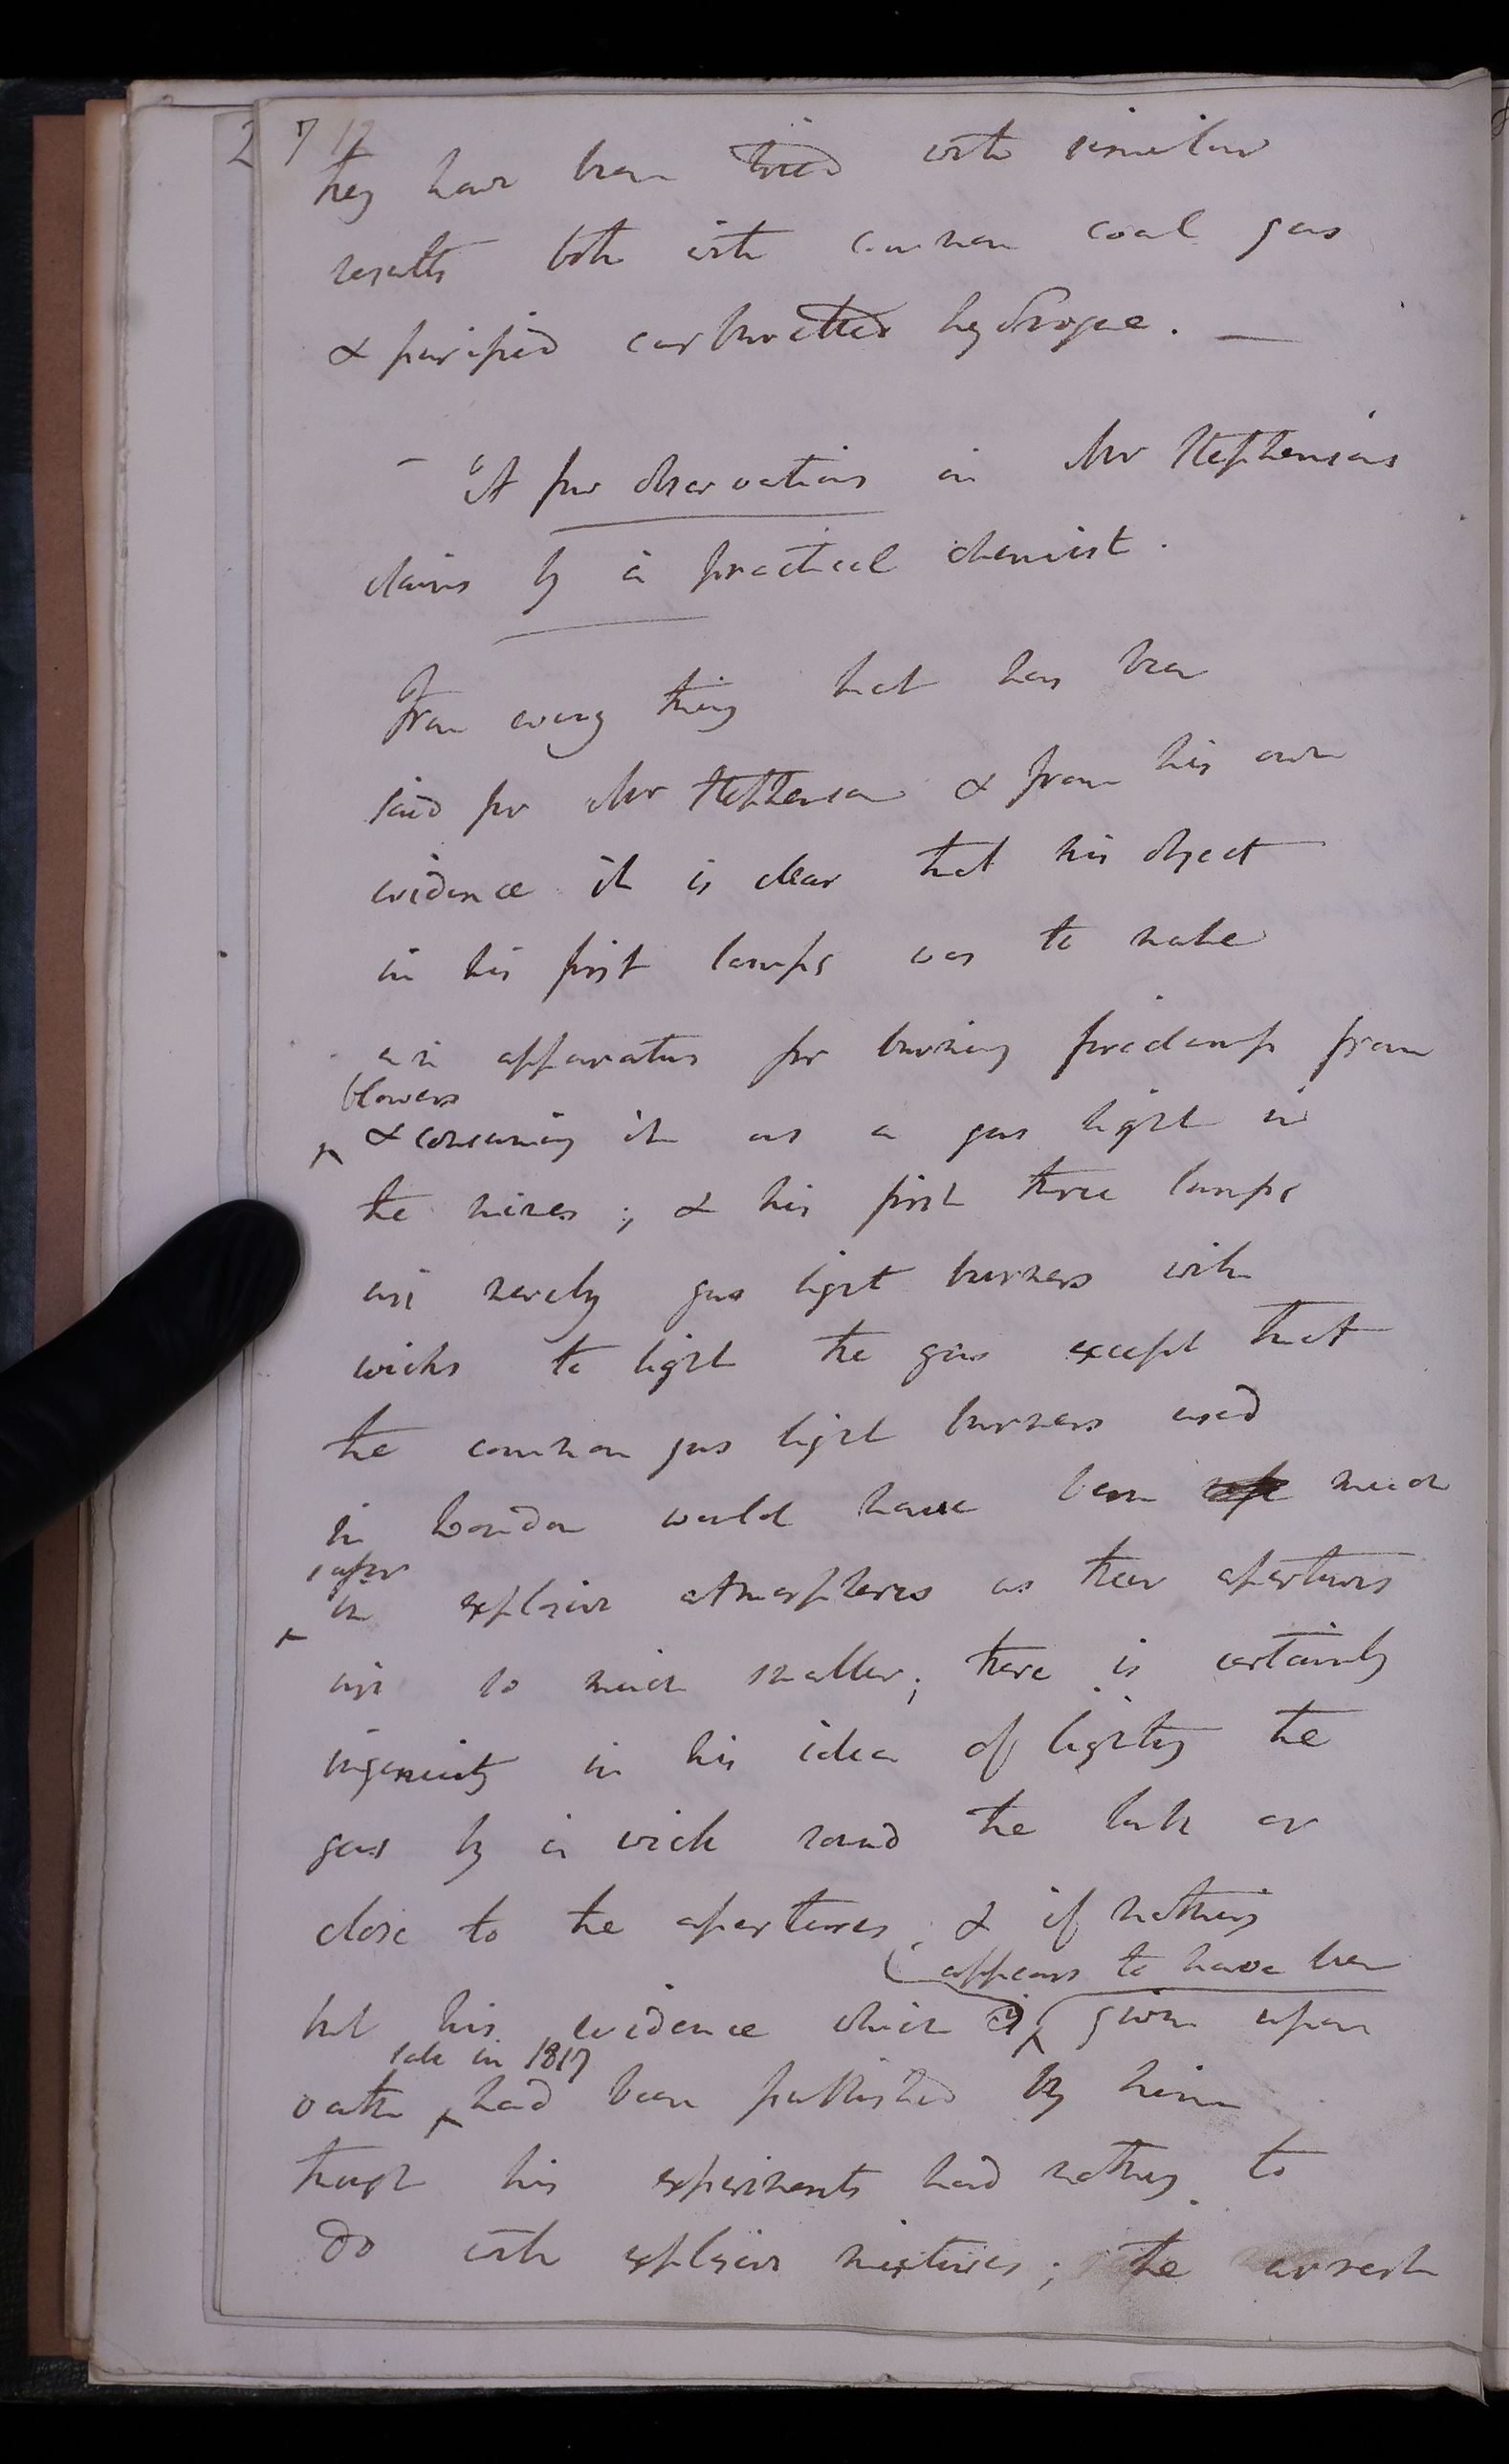 2 7 12
they have been tried with similar
results both with common coal gas
& purified carburetted hydrogene. —
– "A few observations on Mr Stephensons
claims by a practical chemist.
From every thing that has been
said for Mr Stephenson & from his own
evidence it is clear that his object
in his first lamps was to make
an apparatus for burning firedamp from
blowers
& consuming it as a gas light in
the mines; & his first three lamps
are merely gas light burners with
wicks to light the gas except that
the common gas light burners used
in London would have been safe much
safer
in explosive atmospheres as their apertures
are so much smaller; there is certainly
ingenuity in his idea of lighting the
gas by a wick round the tube or
close to the apertures, & if nothing
appears to have been
but his evidence which is given upon
late in 1817
oath had been published by him
though his experiments had nothing to
do with explosive mixtures; the